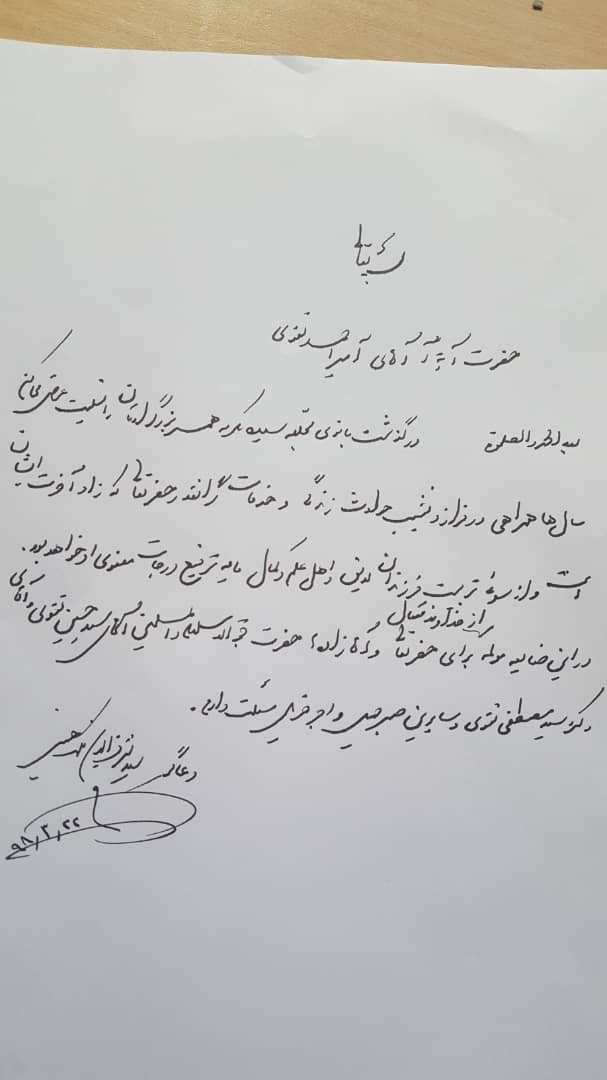 باسمه تعالی
حضرت آیة الله آقای امیر احمد تقوی
بعد الحمد و الصلوة درگذشت بانوی مجلله سیده مکرمه همسر بزرگوارتان را تسلیت عرض می‌کنم
سال‌ها همراهی در فراز و نشیب حوادث زندگی و خدمات گرانقدر حضرتعالی که زاد آخرت ایشان
است و از سوئی تربیت فرزندان متدین و اهل علم و کمال مایه ترفیع درجات معنوی او خواهد بود.
در این ضایعه مولمه از خداوند متعال برای حضرتعالی و آقازاده‌ها حضرت حجة الاسلام والمسلمین آقای سید حسین تقوی و آقای
دکتر سید مصطفی تقوی و سایرین صبر جمیل و اجر جزیل مسئلت دارم.
دعاگو
سید
۹۸/۳/۲۲